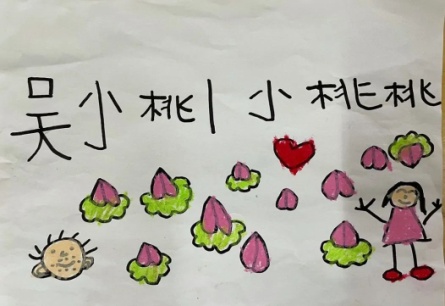 吴小桃丨小桃桃